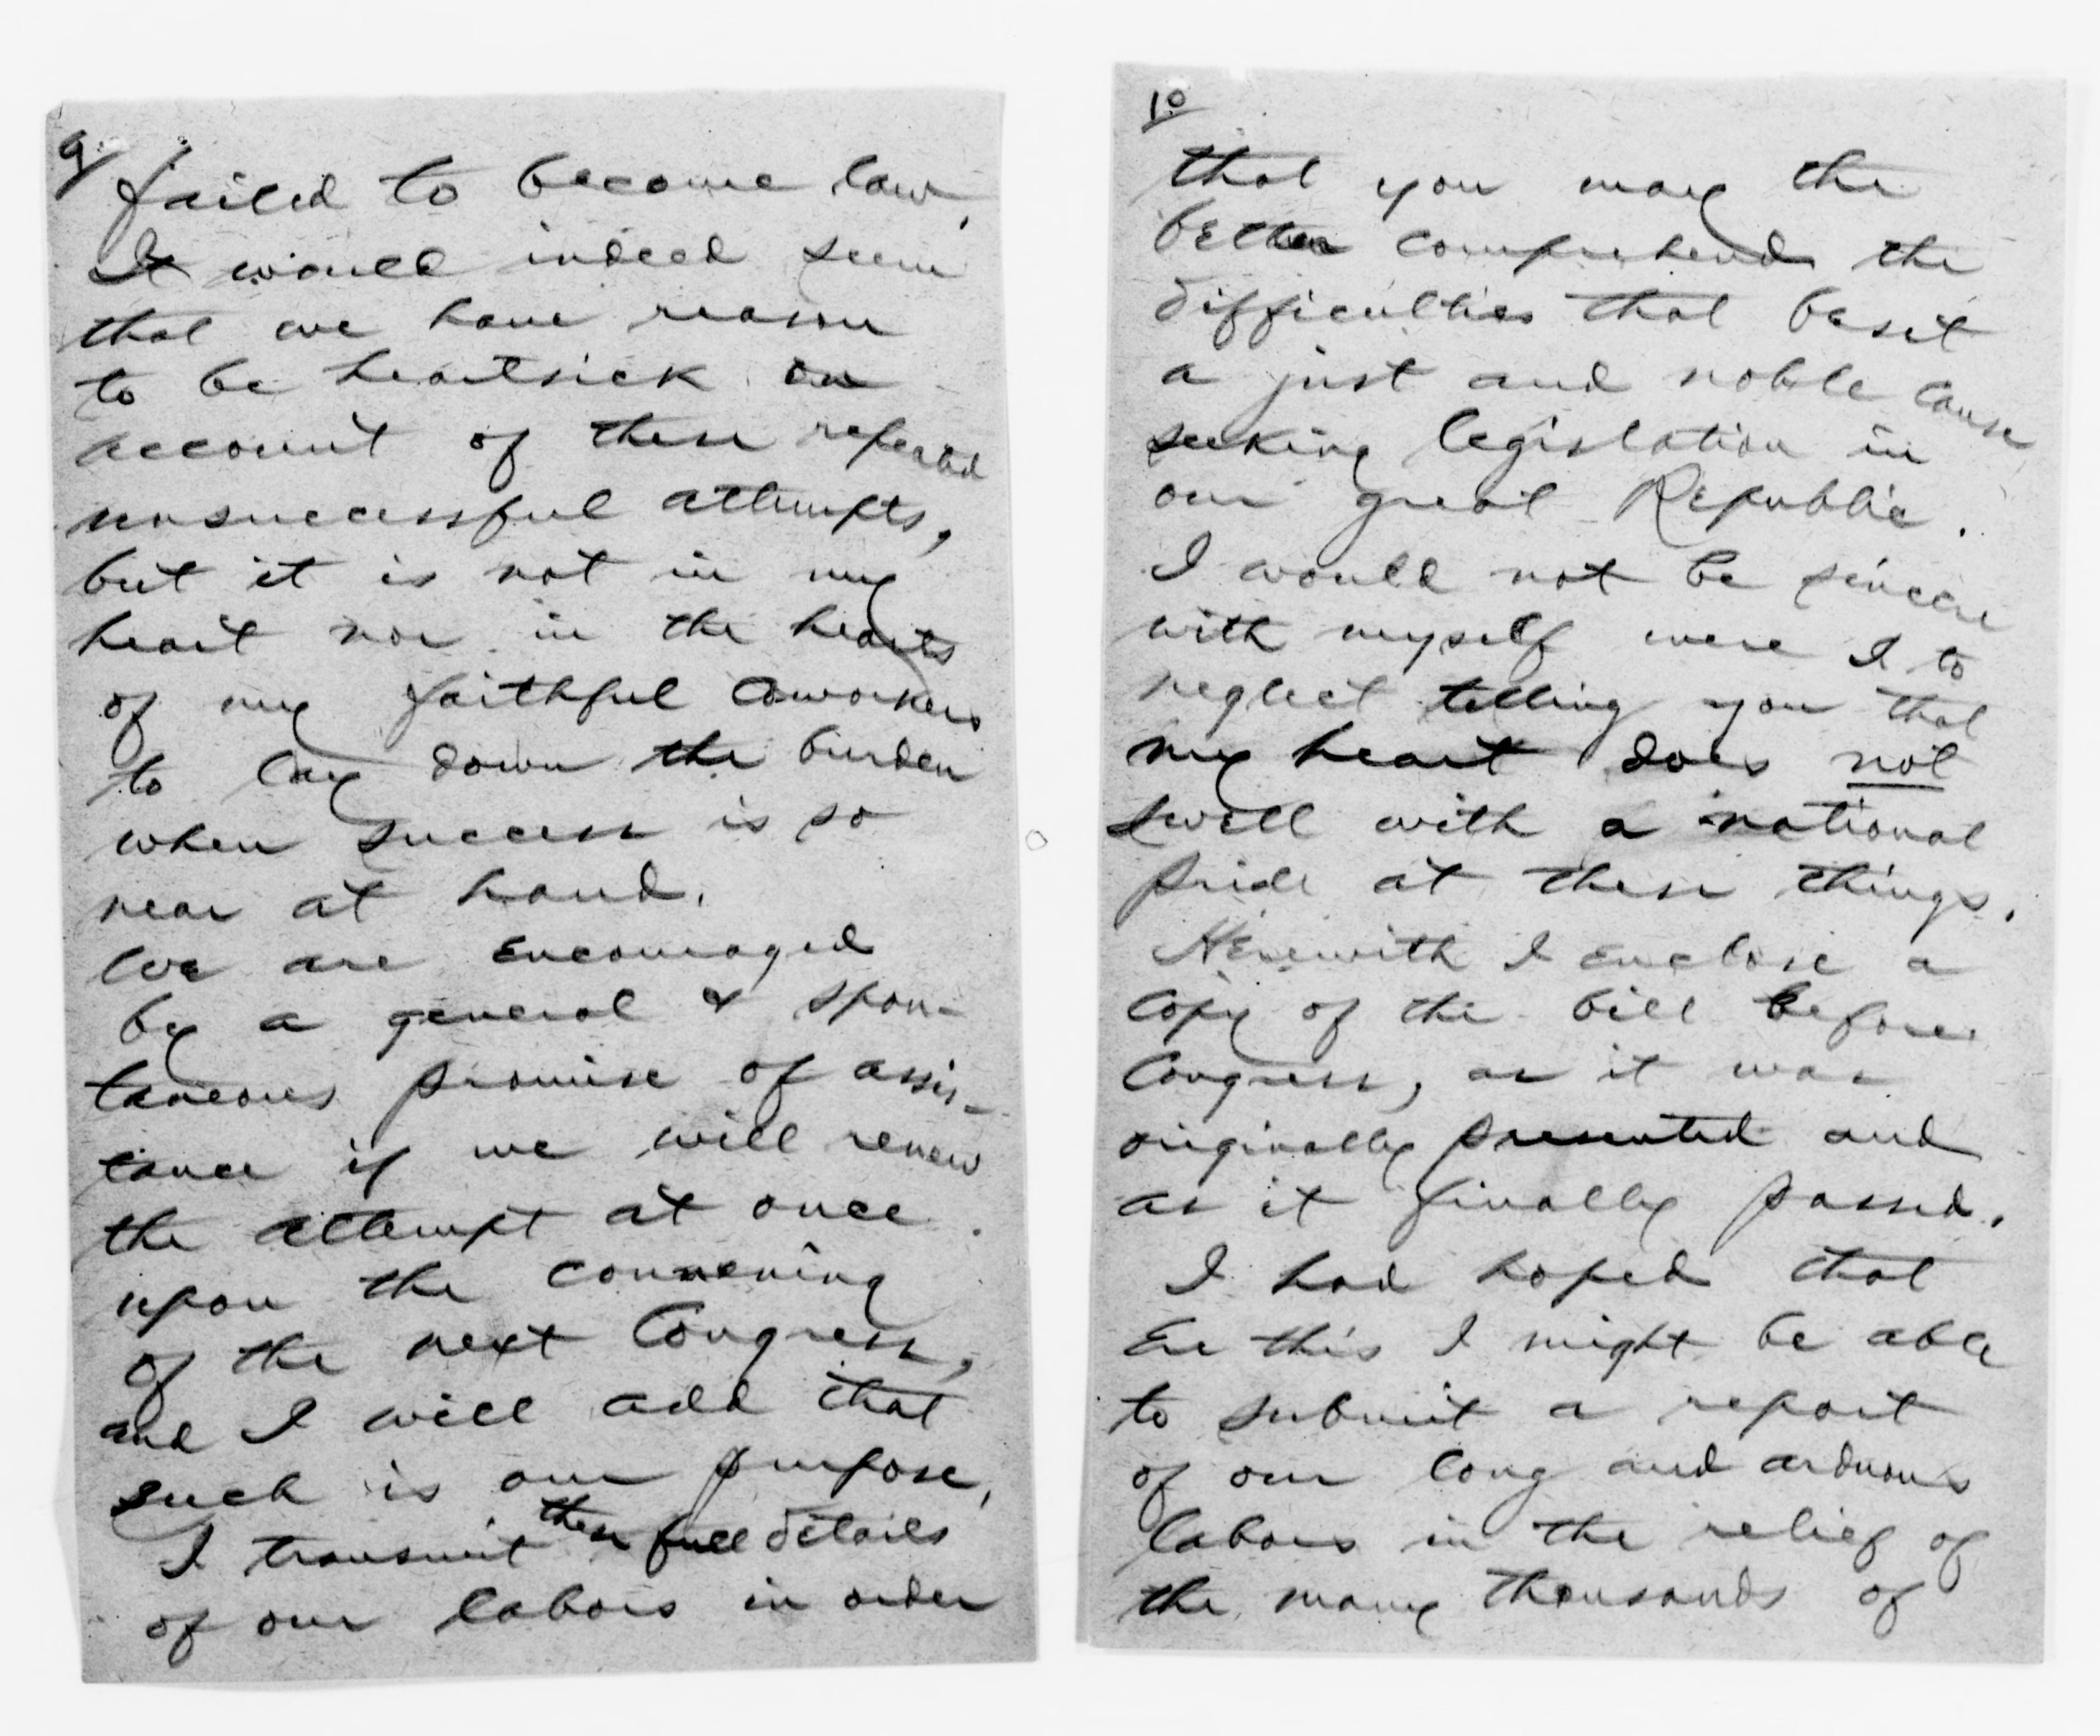 9
failed to become law,
It would indeed seem
that we have reason
to be heartsick on
account of these repeated
unsuccessful attempts,
but it is not in my
heart nor in the hearts
of my faithful coworkers
to lay down the burden
when success is so
near at hand.
We are encouraged
by a general & spon-
taneous promise of assis-
tance if we will renew
the attempt at once
upon the convening
of the next Congress,
and I will add that
such is our purpose,
I transmit these full details
of our labors in order
10
that you may the
better comprehend the
difficulties that beset
a just and noble cause
seeking legislation in
our great Republic.
I would not be sincere
with myself were I to
neglect telling you that
my heart does not
swell with a national
pride at these things.
Herewith I enclose a
copy of the bill before
Congress, as it was
originally presented and
as it finally passed.
I had hoped that
Ere this I might be able
to submit a report
of our long and arduous
labors in the relief of
the many thousands of